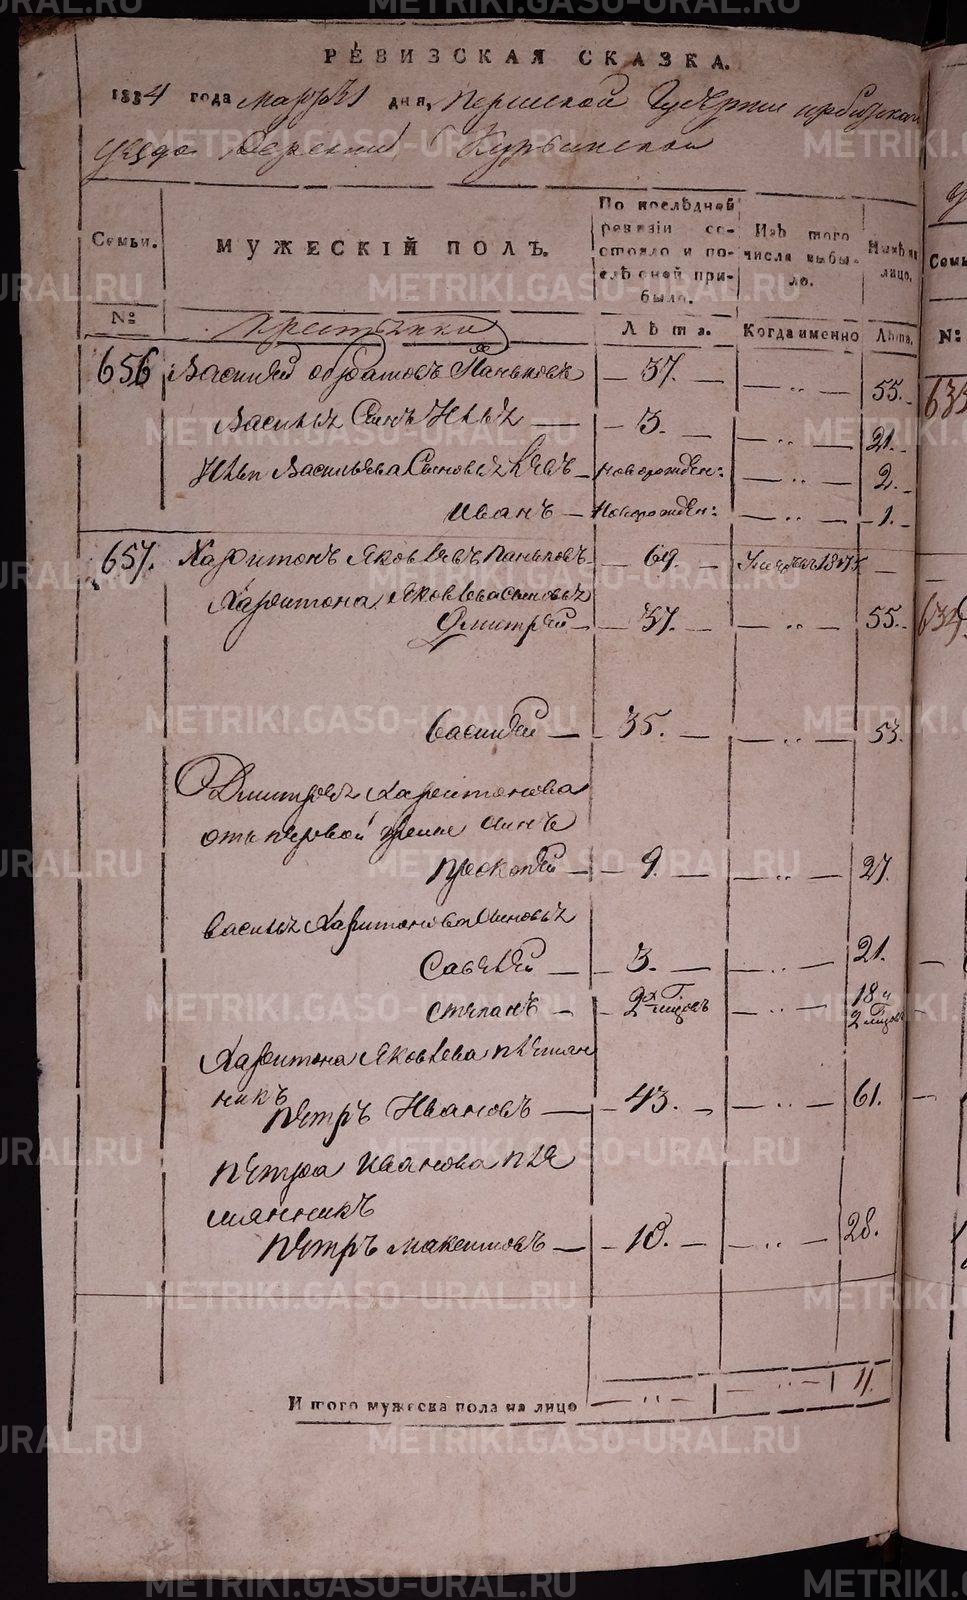 РЕВИЗСКАЯ СКАЗКА.
1834 года марта 1 дня, Пермской Губернии ирбитскаго
уезда деревни
Семьи.
МУЖЕСКІЙ ПОЛЪ.
По послѣдней ревизіи состояло и послѣ оной прибыло.
Изъ того числа выбыло.
Нынѣ на лицо.
Семь
№
крестьяне
Лѣта.
Когда именно
Лѣта.
№
656 Василей Паньковъ — 37. — — „ — 55. —
Василья Сынъ Илья — 3. — — „ — 21. —
Ильи Васильева Сыновья — новорожден: — „ — 2. —
Иванъ — Новорожден: — „ — 1. —
657. Харитонъ Яковлевъ Паньковъ — 69. —
Харитона Яковлева сыновья
Дмитрей — 37. — — „ — 55. —
василей — 35. — — „ — 53.
Дмитрея Харитонова
отъ первой жены сынъ
прокопей — 9. — — „ — 27.
василья Харитонова сыновья
Савелей — 3. — — „ — 21.
степанъ — 2х мцовъ — „ — 18 и 2 мцовъ
Харитона Яковлева племян
никъ
петръ Ивановъ — 43. — — „ — 61.
петра иванова пле
мянникъ
петръ — 10. — — „ — 28.
Итого мужеска пола на лицо — „ — — „ — 11.
METRIKI.GASO-URAL.RU